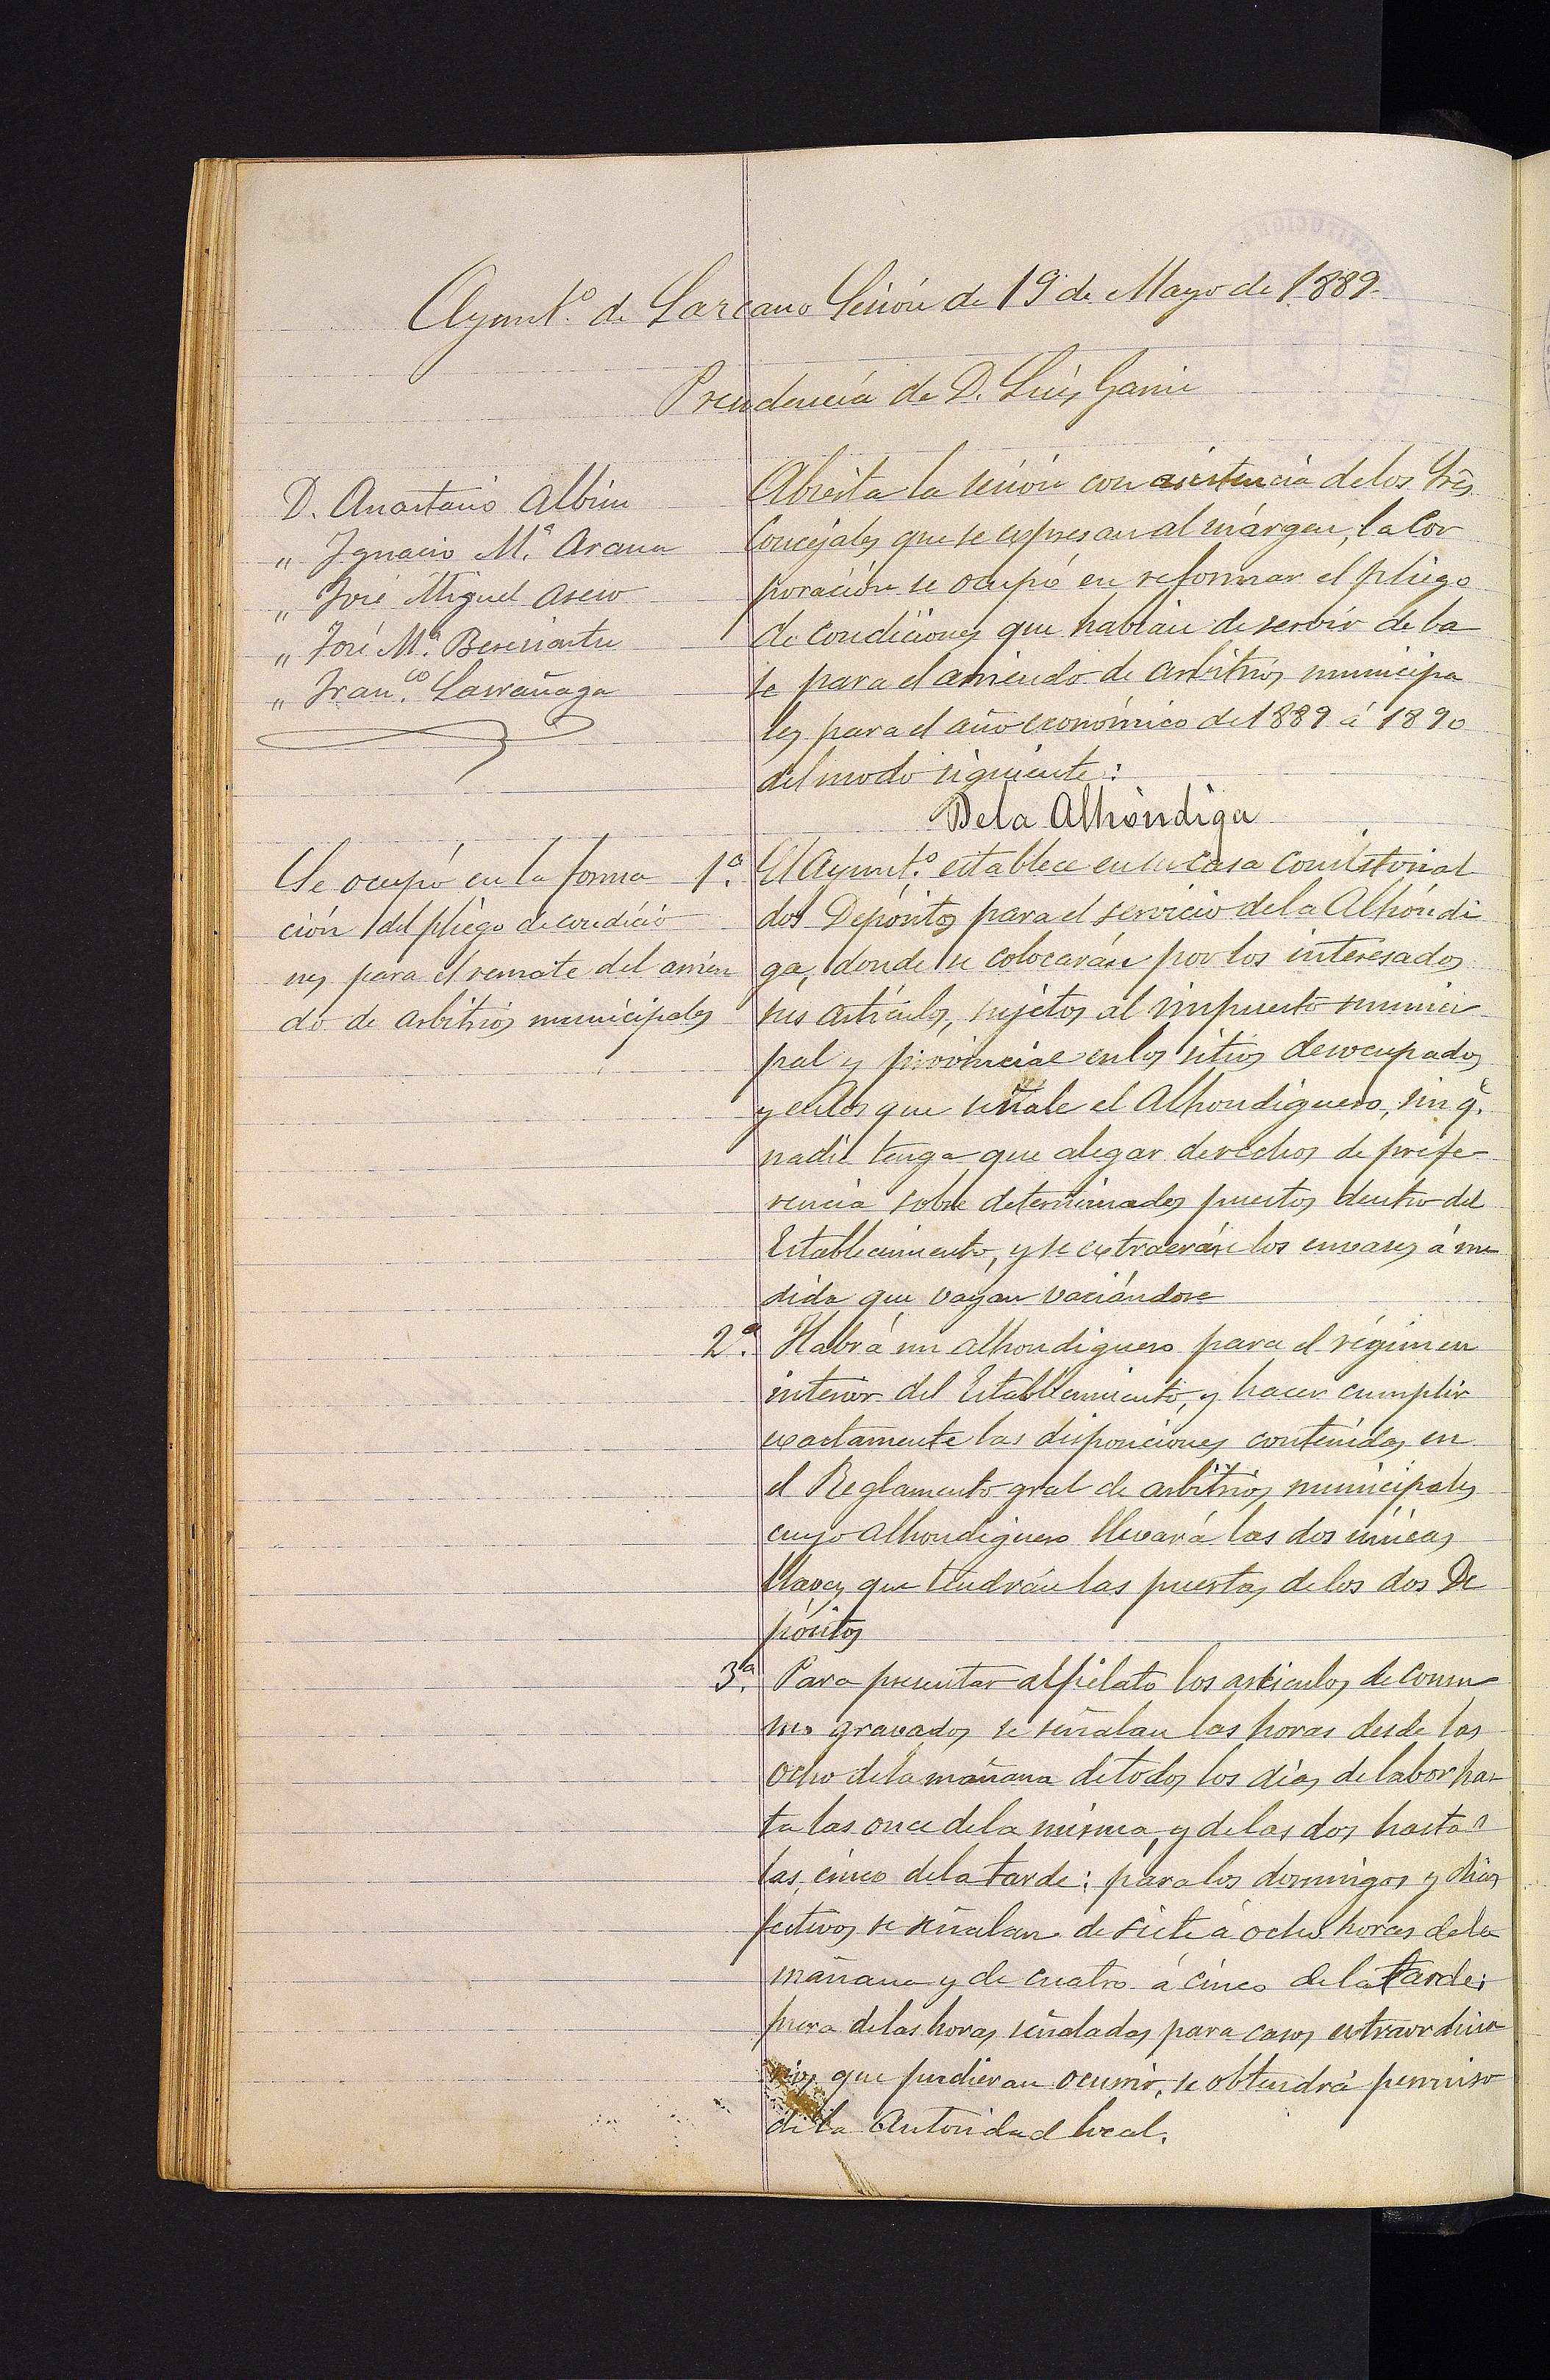 Ayunt.º de Lazcano Sesión de 19 de Mayo de 1889.
Presidencia de D. Luis
D. Anastasio Albisu
„ Ignacio M.ª Arana
„ José Miguel
„ José M.ª Beresiartu
„ Fran.co Larrañaga
Abierta la sesión con asistencia de los Srs
Concejales que se espresan al márgen, la Cor
poración se ocupó en reformar el pliego
de condiciones que habian de servir de ba
se para el arriendo de arbitrios municipa
les para el año económico de 1889 á 1890
del modo siguiente:
De la Alhóndiga
Se ocupó en la forma
ción del pliego de condicio
nes para el remate del arrien
do de arbitrios municipales
1.ª El Ayunt.º establece en su casa Consistorial
dos Depósitos para el servicio de la Alhóndi
ga, donde se colocarán por los interesados
sus artículos, sujetos al impuesto munici
pal y provincial en los sitios desocupados
y en los que señale el Alhondiguero, sin q.
nadie tenga que alegar derechos de prefe
rencia sobre determinados puestos dentro del
Establecimiento, y se extraerán los envases á me
dida que vayan vaciándose
2.ª Habrá un alhondiguero para el régimen
interior del Establecimiento, y hacer cumplir
exactamente las disposiciones contenidas en
el Reglamento gral de arbitrios municipales
cuyo alhondiguero llevará las dos únicas
llaves que tendrán las puertas de los dos De
pósitos
3.ª Para presentar al fielato los articulos de consu
mo gravados se señalan las horas desde las
ocho de la mañana de todos los días de labor has
ta las once de la misma, y de las dos hasta
las cinco de la tarde: para los domingos y dias
festivos se señalan de siete á ocho horas de la
mañana y de cuatro á cinco de la tarde;
fuera de las horas señaladas para casos extraordina
rios que pudieran ocurrir, se obtendrá permiso
de la Autoridad local.